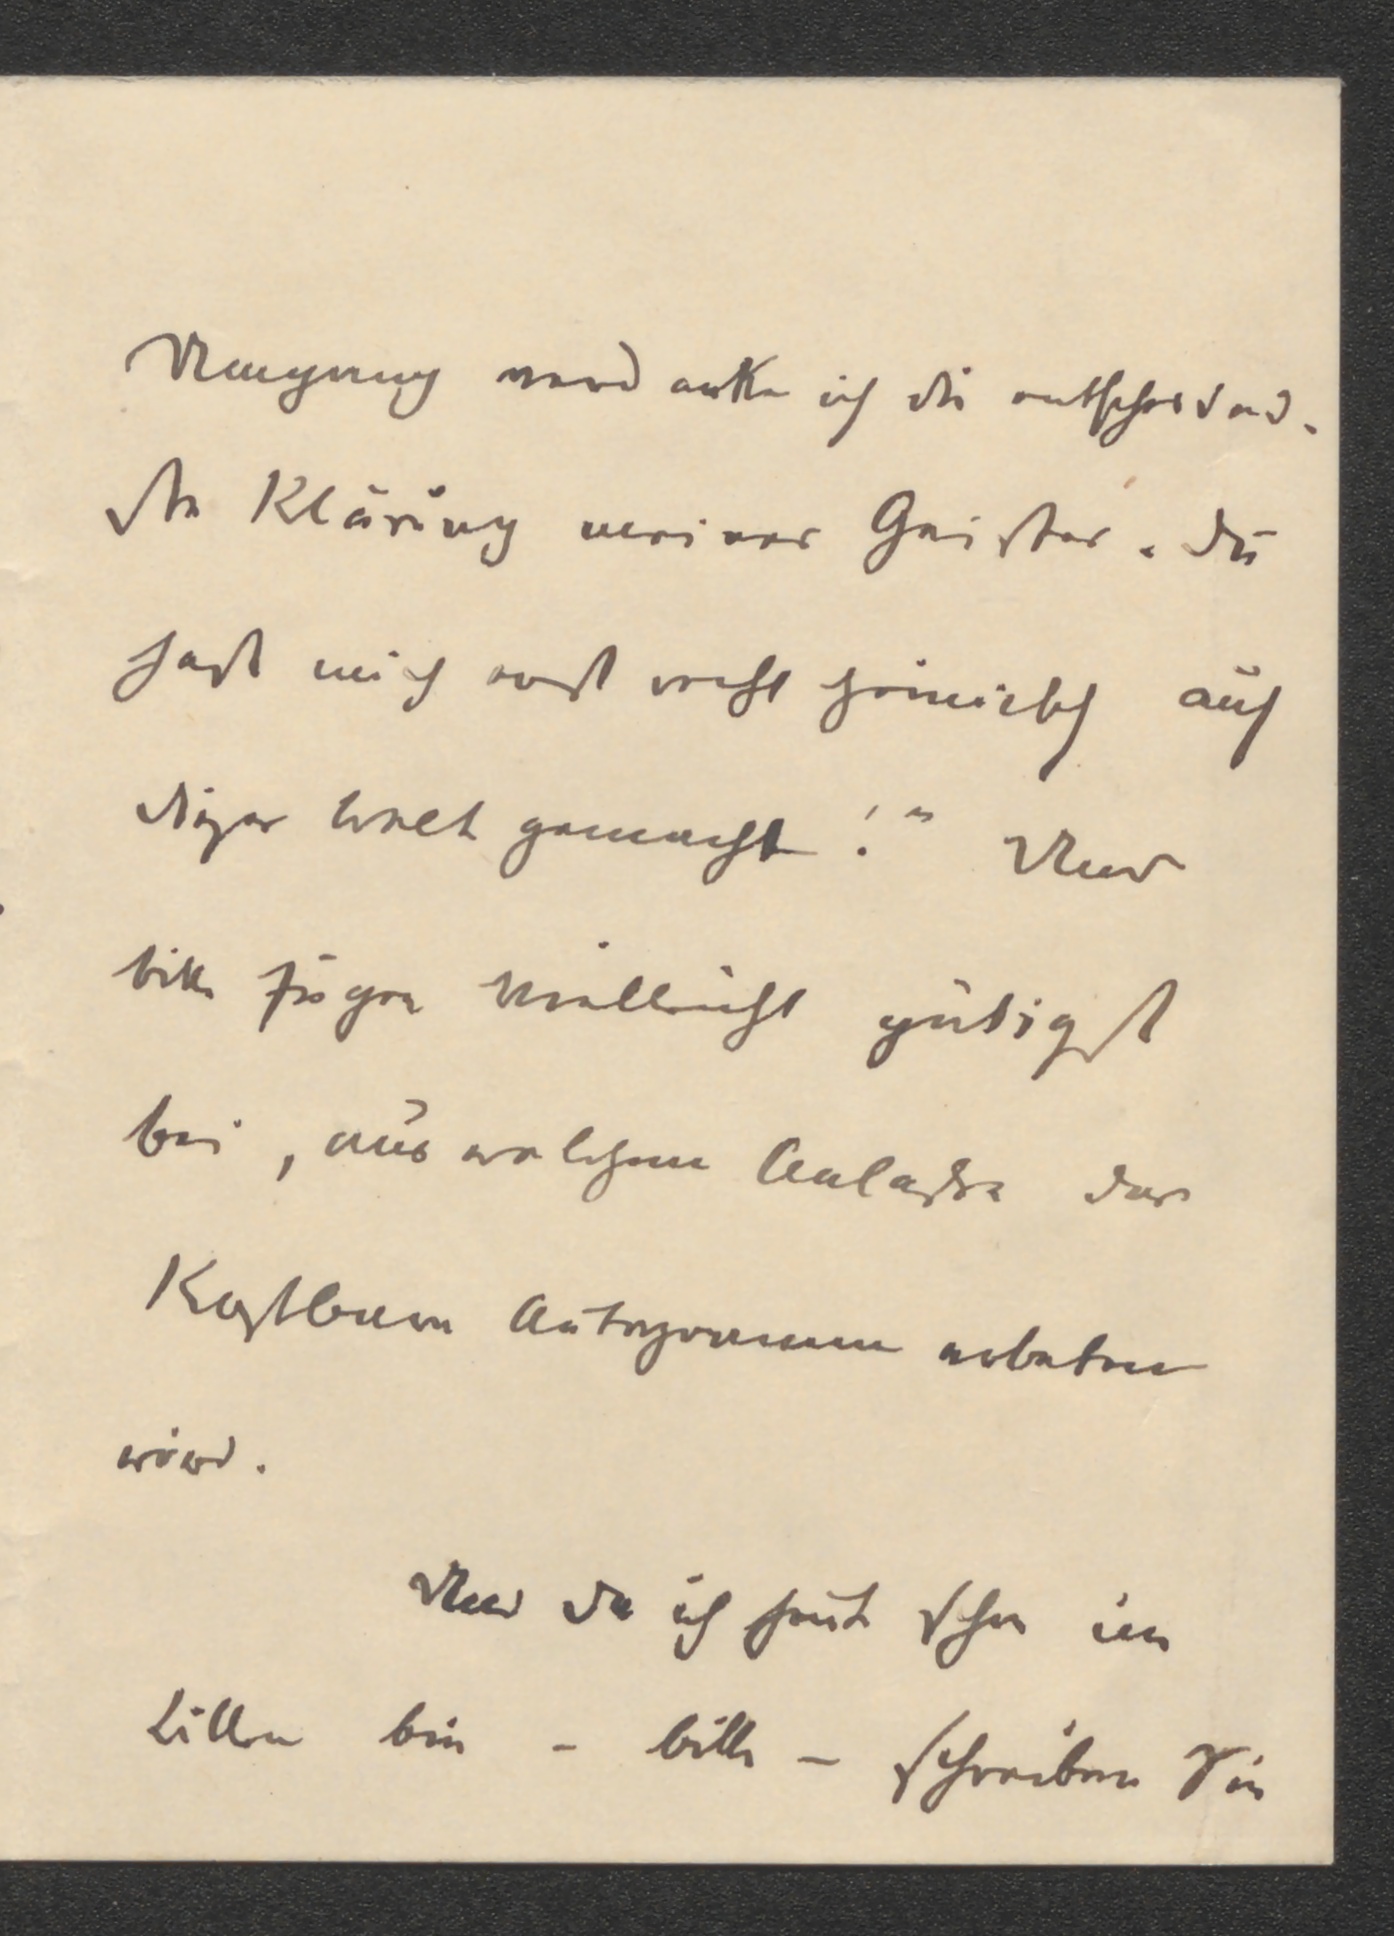 verdanke ich die entscheidend-
ste Klärung meines Geistes. Du
hast mich erst recht heimisch auf
dieser Welt gemacht!" Und
bitte fügen vielleicht gütigst
bei, aus welchem Anlasse das
Kostbare Autogramm erbeten
wird.
Und da ich heut schon im
Bitten bin – bitte – schreiben Sie